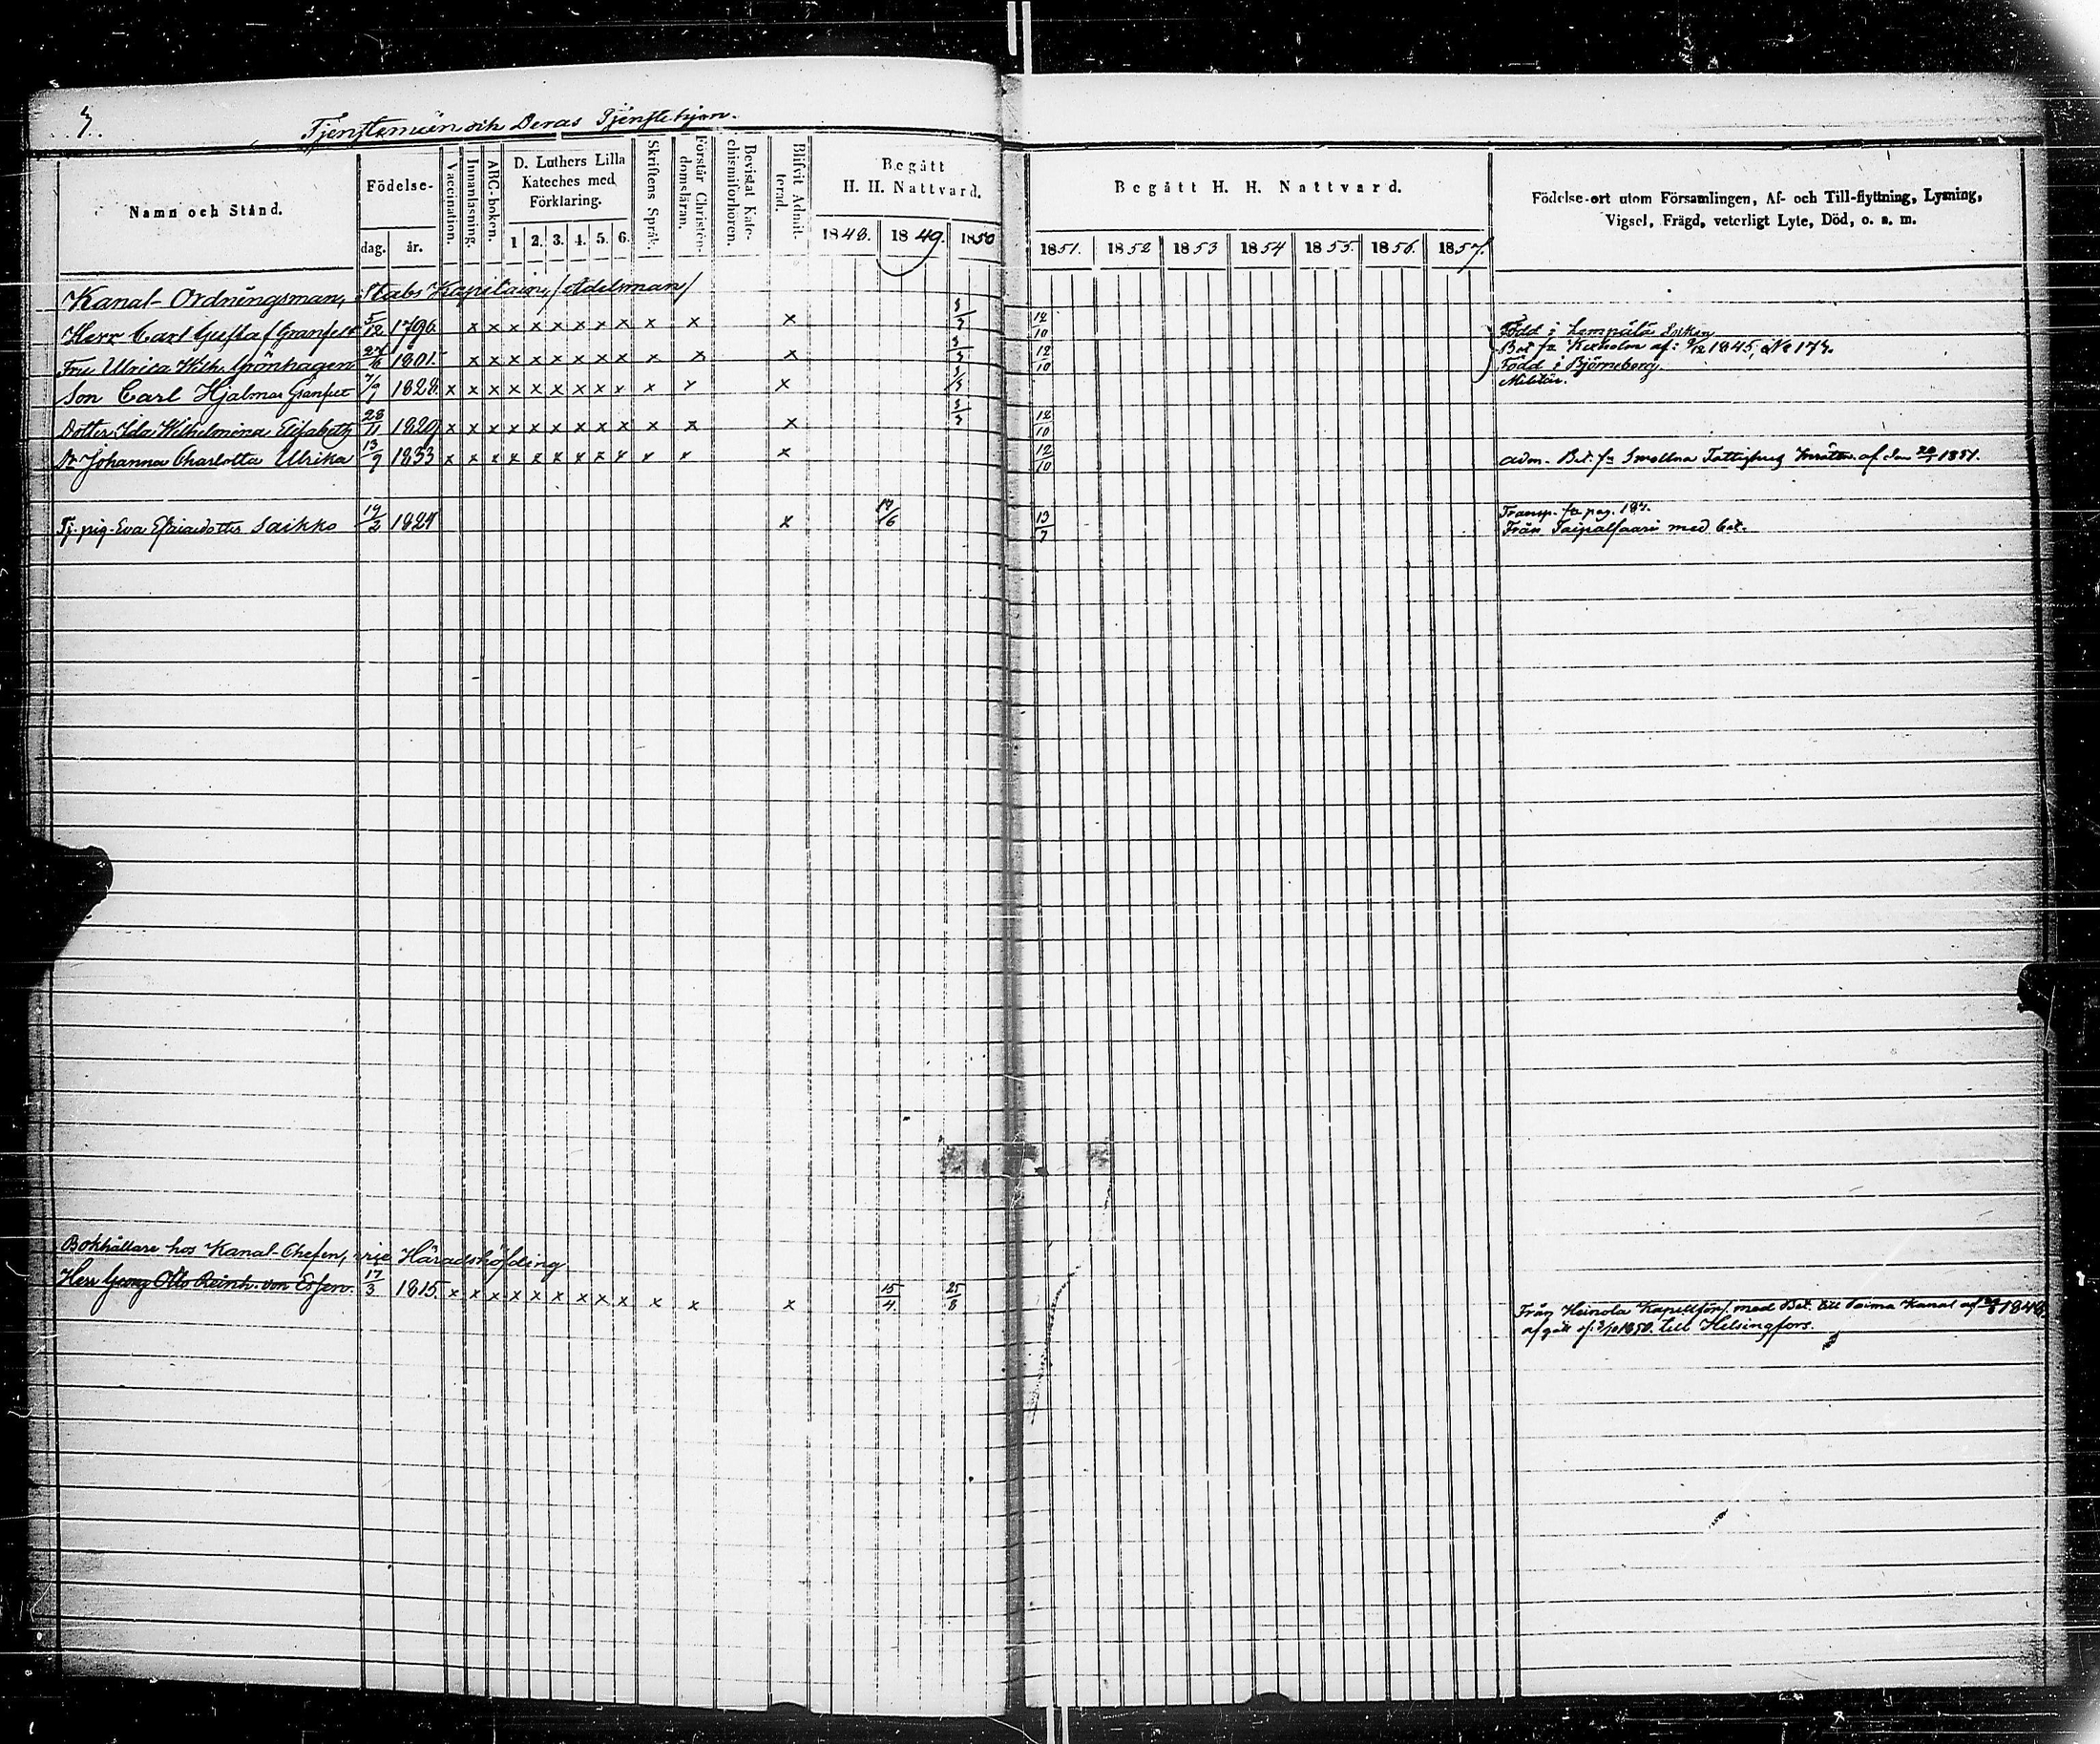 7.
Tjenstemän och Deras Tjenstehjon.
Namn och Stånd.
Födelse-
dag. år.
Vaccination.
Innanläsning.
ABC-boken.
D. Luthers Lilla
Kateches med
Förklaring.
1 2. 3. 4. 5. 6.
Skriftens Språk.
Förstår Christen-
domsläran.
Bevistat Kate-
chismiförhören.
Blifvit Admit-
terad.
Begått
H. H. Nattvard.
1848. 1849. 1850
Begått H. H. Nattvard.
1851. 1852 1853 1854 1855. 1856. 1857.
Födelse-ort utom Församlingen, Af- och Till-flyttning, Lysning,
Vigsel, Frägd, veterligt Lyte, Död, o. s. m.
Kanal-Ordningsman, Stabs Kapitain, /Adelsman/
Herr Carl Gustaf Granfelt 5/12 1796. x x x x x x x x x x x 3/3 12/10 Född i Lempälä Socken
Bet fr Kexholm af: 1845, No 173.
Fru Ulrica Wilh. Grönhagen 27/6 1801. x x x x x x x x x x x 3/3 12/10 Född i Björneborg
Son Carl Hjalmar Granfelt 1828. x x x x x x x x x x x x 3/3 Militär.
Dotter Ida Wilhelmina Elisabeth 28/11 1829 x x x x x x x x x x x x 3/3 12/10
Dr Johanna Charlotta Ulrika 13/9 1833 x x x x x x x x x x x x 12/10 adm. Bet. fr Smollna Fattighus af den 1851.
Transp. fr pag. 187.
Tj. pig. Eva Esaiædotter Saikko 19/2 1827 x 17/6 13/7 Från Taipalsaari med bet.
Bokhållare hos Kanal-Chefen, vice Häradshöfding
Herr Georg Otto Reinh. von Essen. 17/3 1815. x x x x x x x x x x x x 15/4. 25/8
Från Heinola Kapellförs. med Bet. till Saima Kanal af 1848,
afgått af: 1850. till Helsingfors.